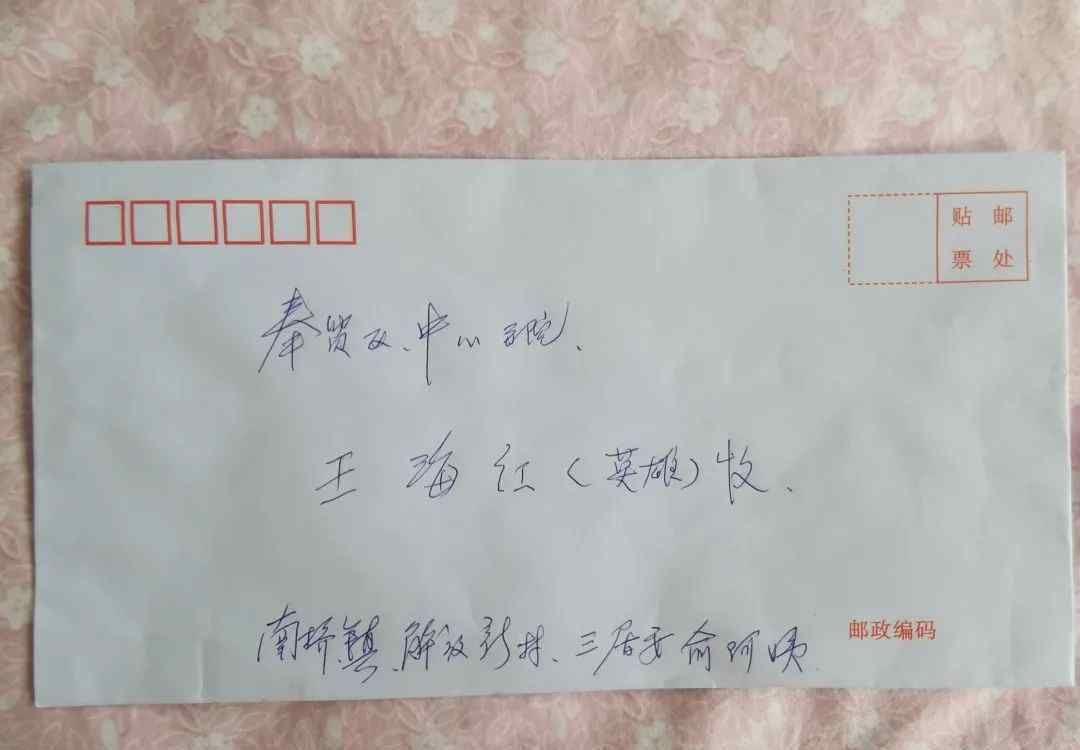 贴 邮
票 处
奉贤区、中心医院、
王海红(英雄)收、
南桥镇、解放新村、三居委俞阿姨
邮政编码